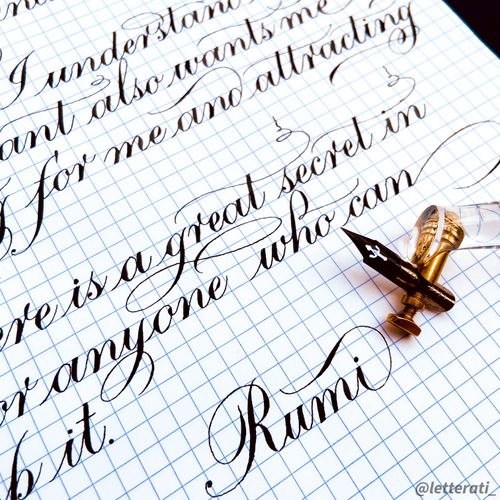 I understand
ant also wants me
for me and attracting
ere is a great secret in
or anyone who can
it.
Rumi
@letterati_